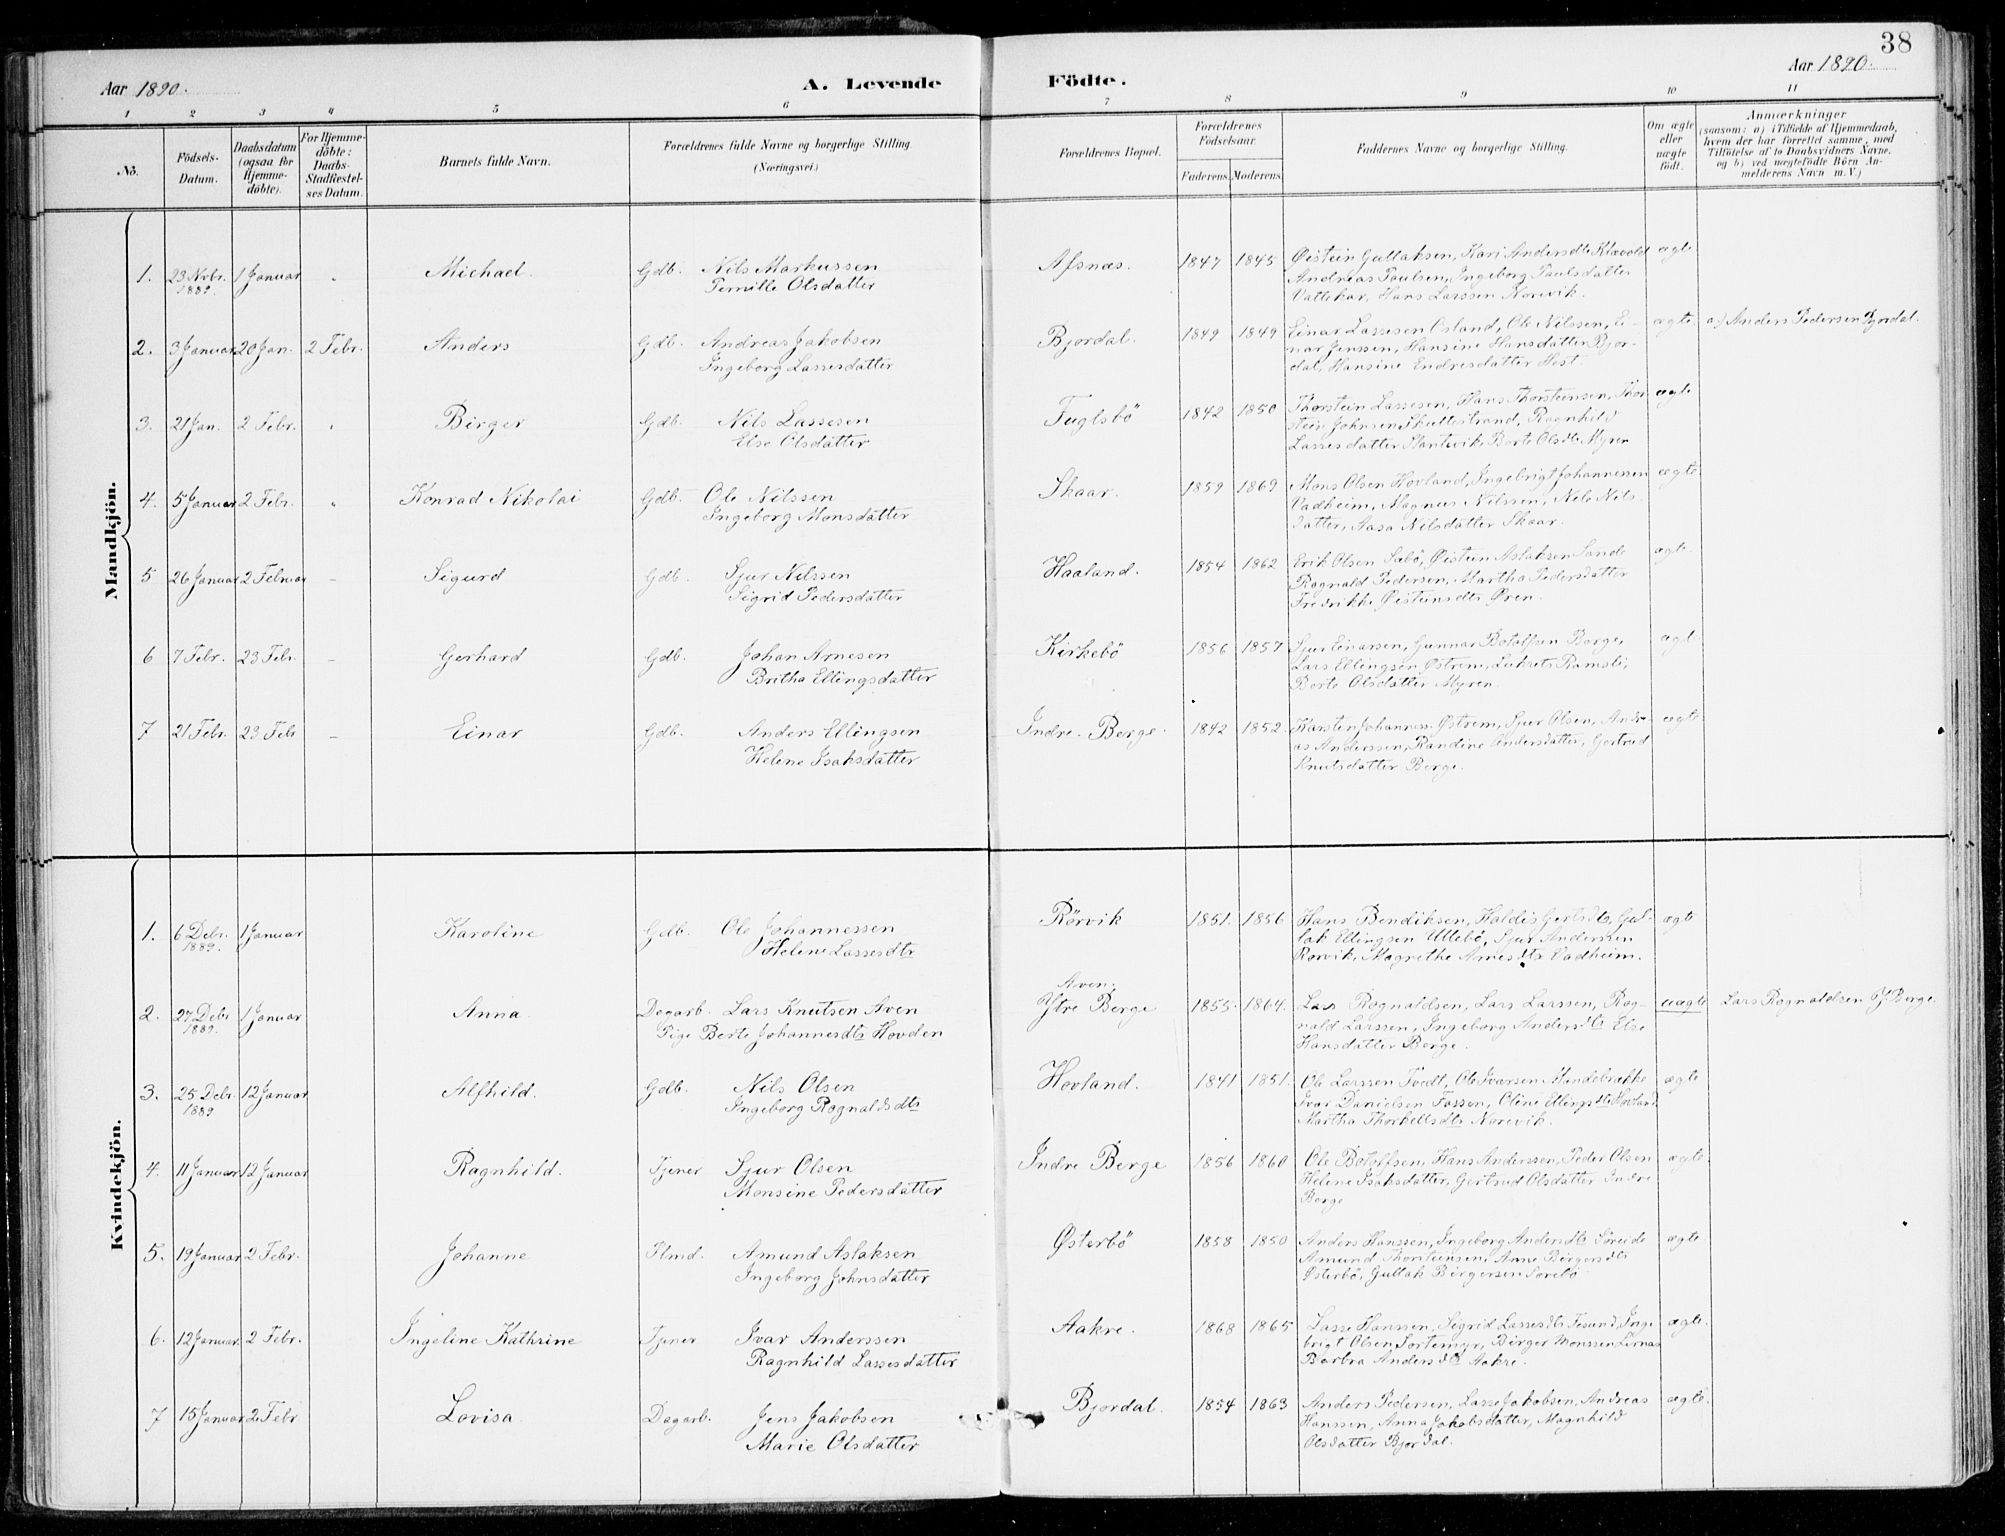 38
Aar 1890.
A. Levende Födte.
Aar 1890.
1 2 3 4 5 6 7 8 9 10 11
No.
Födsels-Datum.
Daabsdatum (ogsaa for Hjemme-döbte).
For Hjemme-döbte: Daabs-Stadfæstel-ses Datum.
Barnets fulde Navn.
Forældrenes fulde Navne og borgerlige Stilling. (Næringsvei.)
Forældrenes Bopæl.
Forældrenes Födselsaar.
Faderens. Moderens.
Faddernes Navne og borgerlige Stilling.
Om ægte eller uægte födt.
Anmærkninger
(saasom: a) i Tilfælde af Hjemmedaab, hvem der har forrettet samme, med Tilföielse af to Daabsvidners Navne, og b) ved uægtefödte Börn An-melderens Navn m. V.)
Mandkjön.
1. 23 Novbr. 1889. 1 Januar " Michael. Gdb. Nils Markussen Afsnæs. 1847 1845 Øistein Gullaksen, Kari Andersdtr Klævold ægte
Pernille Olsdatter Andreas Paulsen, Ingeborg Paulsdatter
Vattekar, Hans Larssen Norevik.
2. 3 Januar 20 Jan. 2 Febr. Anders Gdb. Andreas Jakobsen Bjordal. 1849 1849 Einar Lassesen Osland, Ole Nilssen, Ei- ægte a.) Anders Pedersen Bjordal.
Ingeborg Lassesdatter nar Jenssen, Hansine Hansdatter Bjor-
dal, Hansine Endresdatter Hest.
3. 21 Jan. 2 Febr. " Birger Gdb. Nils Lassesen Fuglsbö 1842 1850 Thorstein Lassesen, Hans Thorsteinsen, Thor- ægte
Else Olsdatter stein Johnsen Skuttestrand, Ragnhild
Lassesdatter Berte Olsdtr Myren
4. 5 Januar 2 Febr. " Konrad Nikolai Gdb. Ole Nilssen Skaar. 1859 1869 Mons Olsen Hovland, Ingebrigt Johannessen ægte
Ingeborg Monsdatter Vadheim, Magnus Nilssen, Nils-
datter, Aasa Nilsdatter Skaar.
5 26 Januar 2 Februar - Sigurd Gdb. Sjur Nilssen Haaland. 1854 1862 Erik Olsen Sæbö, Øistein Aslaksen Sande ægte
Sigrid Pedersdatter Ragnald Pedersen, Martha Pedersdatter
Fredrikke Øisteinsdtr Øren.
6 7 Febr. 23 Febr. - Gerhard Gdb. Johan Arnesen Kirkebö 1856 1857 Sjur Einarsen, Gunnar Botolfsen Berge, ægte
Britha Ellingsdatter Lars Ellingsen Østrem, Ramsli,
Berte Olsdatter Myren.
7 21 Febr. 23 Febr - Einar Gdb. Anders Ellingsen Indre Berge. 1842 1852. Karsten Johanness. Østrem, Sjur Olsen, Andre- ægte
Helene Isaksdatter as Anderssen, Randine Andersdatter, Gertrud
Knutsdatter Berge.
Kvindekjön.
1. 6 Debr. 1889. 1 Januar Karoline Gdb. Ole Johannessen Rörvik 1851. 1856 Hans Bendiksen, Haldis Gertsdtr, Gul- ægte
Helene Lassesdtr lak Ellingsen Ullebö, Sjur Andersen
Rörvik, Magrethe Arnesdtr Vadheim.
Aven.
2. 27 Debr. 1889. 1 Januar Anna. Dagarb. Lars Knutsen Aven Ytre Berge 1855. 1864. Lars Rognaldsen, Lars Larssen, Rog- uægte Lars Rognaldsen Y. Berge.
Pige Berte Johannesdtr Hovden nald Larssen, Ingeborg Andersdtr Else
Hansdatter Berge.
3. 25 Debr. 1889 12 Januar Alfhild. Gdb. Nils Olsen Hovland. 1841 1851. Ole Larssen Tvedt, Ole Ivarsen Mundebrække ægte
Ingeborg Rognaldsdtr Ivar Danielsen Fossen, Oline Ellingsdtr Hovland
Martha Thorkellsdtr Norevik.
4. 11 Januar 12 Januar Ragnhild. Tjener Sjur Olsen Indre Berge 1856 1860 Ole Botolfsen, Hans Anderssen, Peder Olsen ægte.
Monsine Pedersdatter Helene Isaksdatter, Gertrud Olsdatter Indre
Berge
5. 19 Januar 2 Febr. Johanne Hlmd. Amund Aslaksen Østerbö 1858 1850 Anders Hanssen, Ingeborg Andersdtr Söreide ægte
Ingeborg Johnsdatter Amund Thorsteinsen, Anne Börgersdtr
Østerbö, Gullak Börgersen Sörebö.
6. 12 Januar 2 Febr. Ingeline Kathrine Tjener Ivar Anderssen Aakre. 1868 1865 Lasse Hanssen, Sigrid Lassesdtr Tesund, Inge- ægte.
Ragnhild Lassesdatter brigt Olsen Sortemyr, Birger Monssen
Barbra Andersdtr Aakre.
7 15 Januar 2 Febr Lovisa. Dagarb. Jens Jakobsen Bjordal. 1854 1863 Anders Pedersen, Lasse Jakobsen, Andreas ægte.
Marie Olsdatter Hanssen, Anna Jakobsdatter, Magnhild
Olsdatter Bjordal.